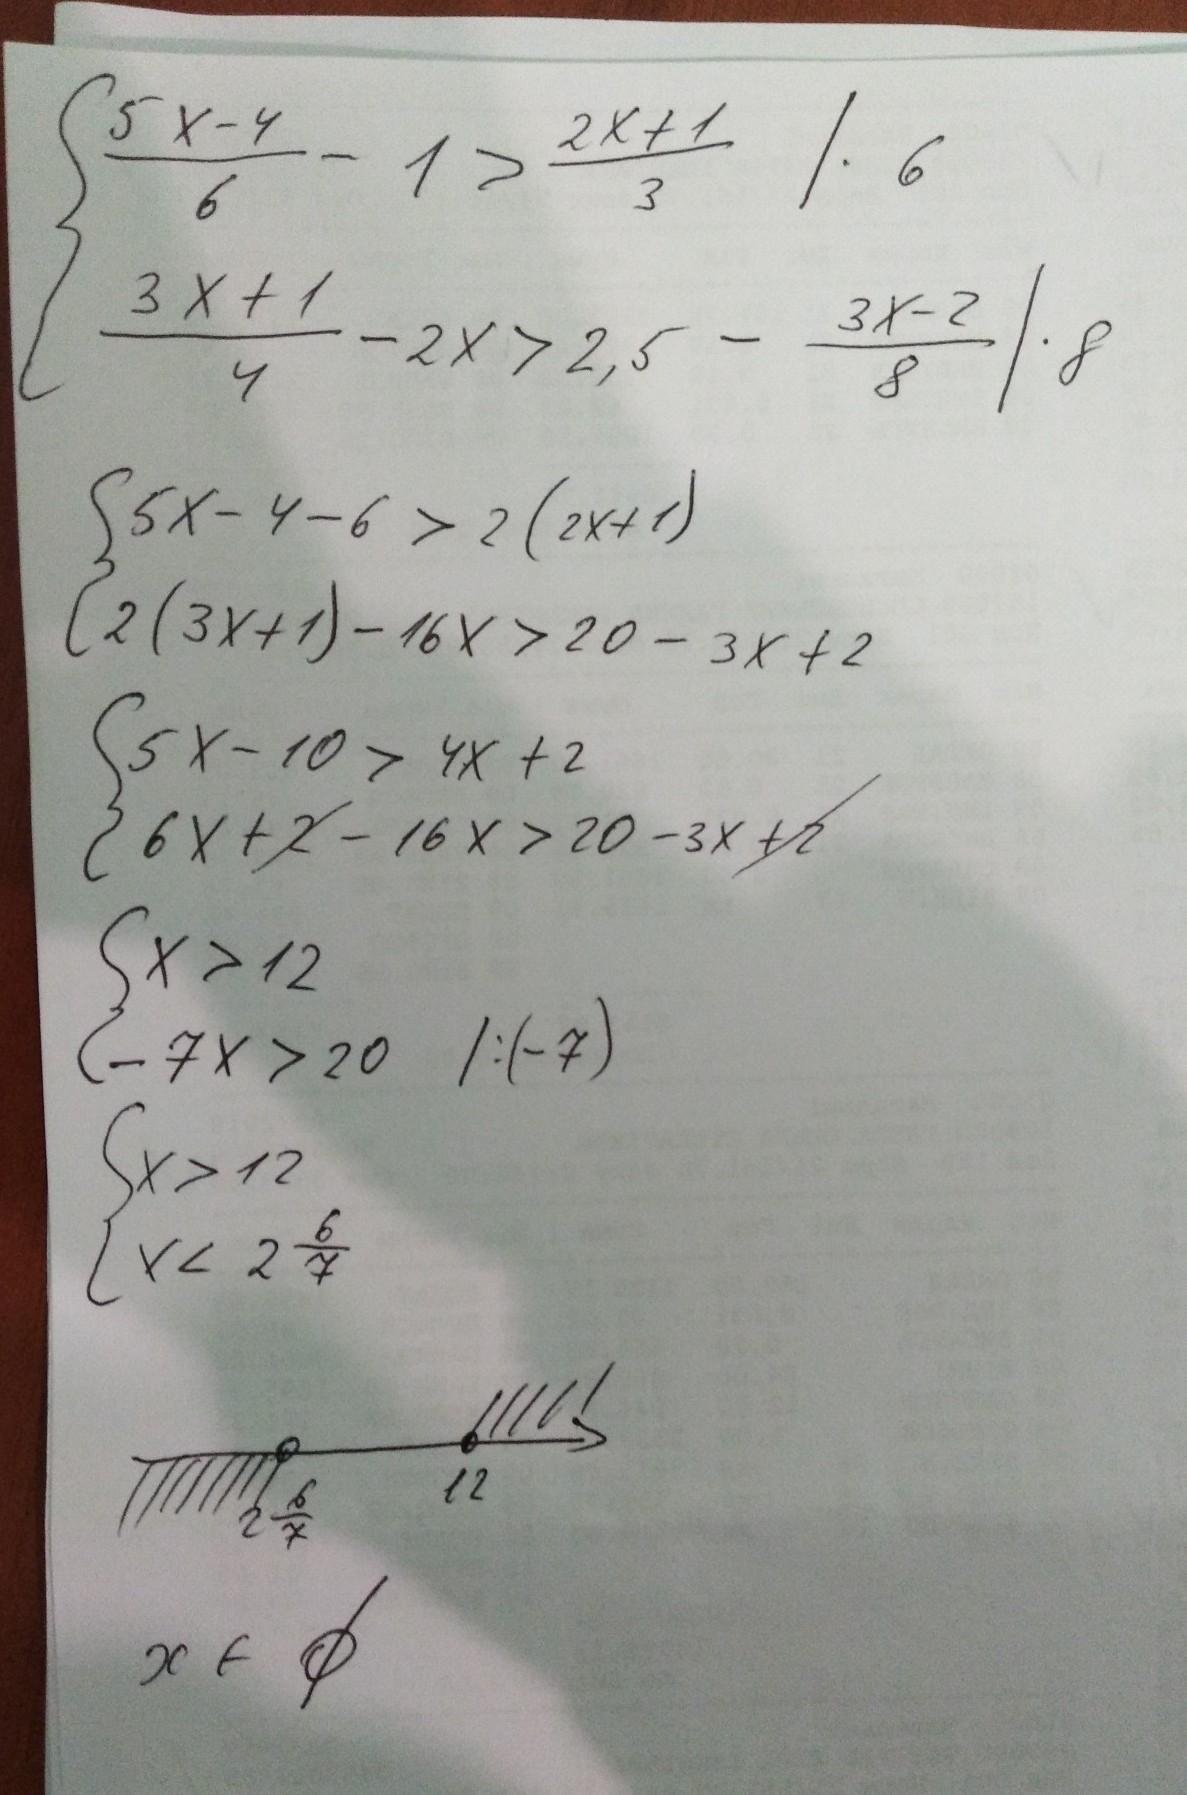 { (5x-4)/6 - 1 > (2x+1)/3 /· 6
(3x+1)/4 - 2x > 2,5 - (3x-2)/8 /· 8
{ 5x - 4 - 6 > 2(2x+1)
2(3x+1) - 16x > 20 - 3x + 2
{ 5x - 10 > 4x + 2
6x + 2 - 16x > 20 - 3x + 2
{ x > 12
-7x > 20 /:(-7)
{ x > 12
x < 2 6/7
2 6/7 12
x ∈ ∅